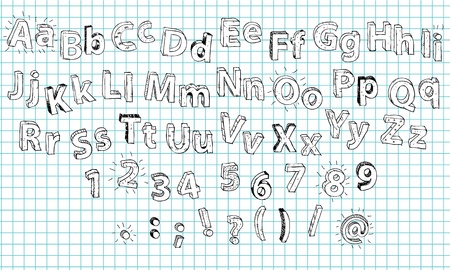 Aa Bb Cc Dd Ee Ff Gg Hh Ii
Jj Kk Ll Mm Nn Oo Pp Qq
Rr Ss Tt Uu Vv Xx Yy Zz
1 2 3 4 5 6 7 8 9
. : ; ! ? ( ) / @